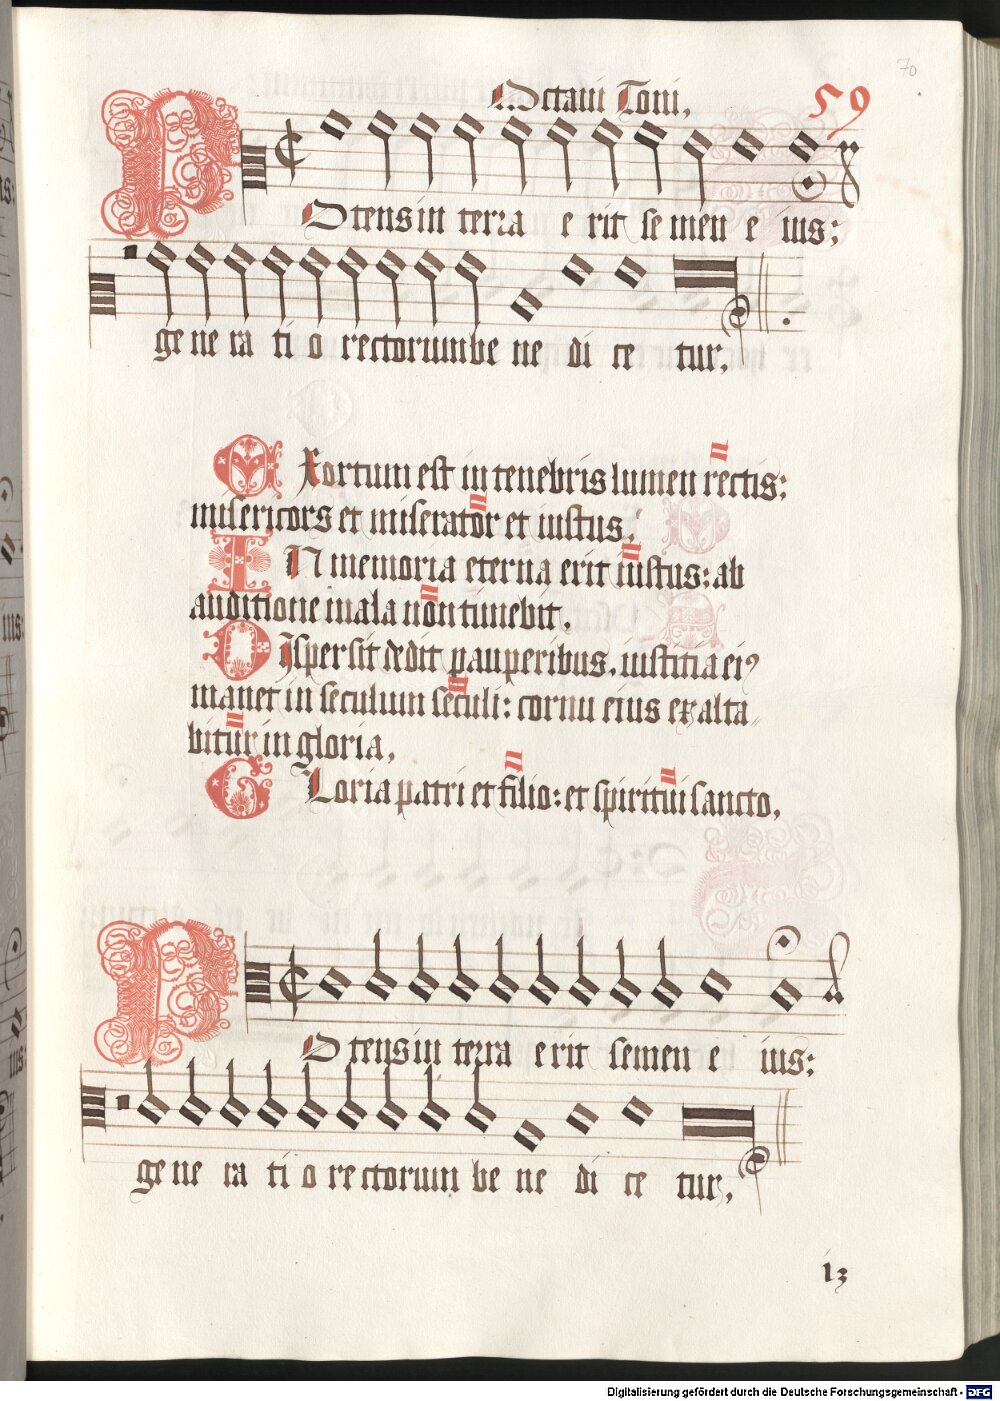 70
Octaui Toni.
59
POtens in terra e rit se men e ius:
ge ne ra ti o rectorum be ne di ce tur.
EXortum est in tenebris lumen rectis:
misericors et miserator et iustus.
IN memoria eterna erit iustus: ab
auditione mala non timebit.
DIspersit dedit pauperibus. iustitia eiꝰ
manet in seculum seculi: cornu eius exalta„
bitur in gloria.
GLoria patri et filio: et spiritui sancto.
POtens in terra e rit semen e ius:
ge ne ra ti o re ctorum be ne di ce tur.
13
Digitalisierung gefördert durch die Deutsche Forschungsgemeinschaft - DFG